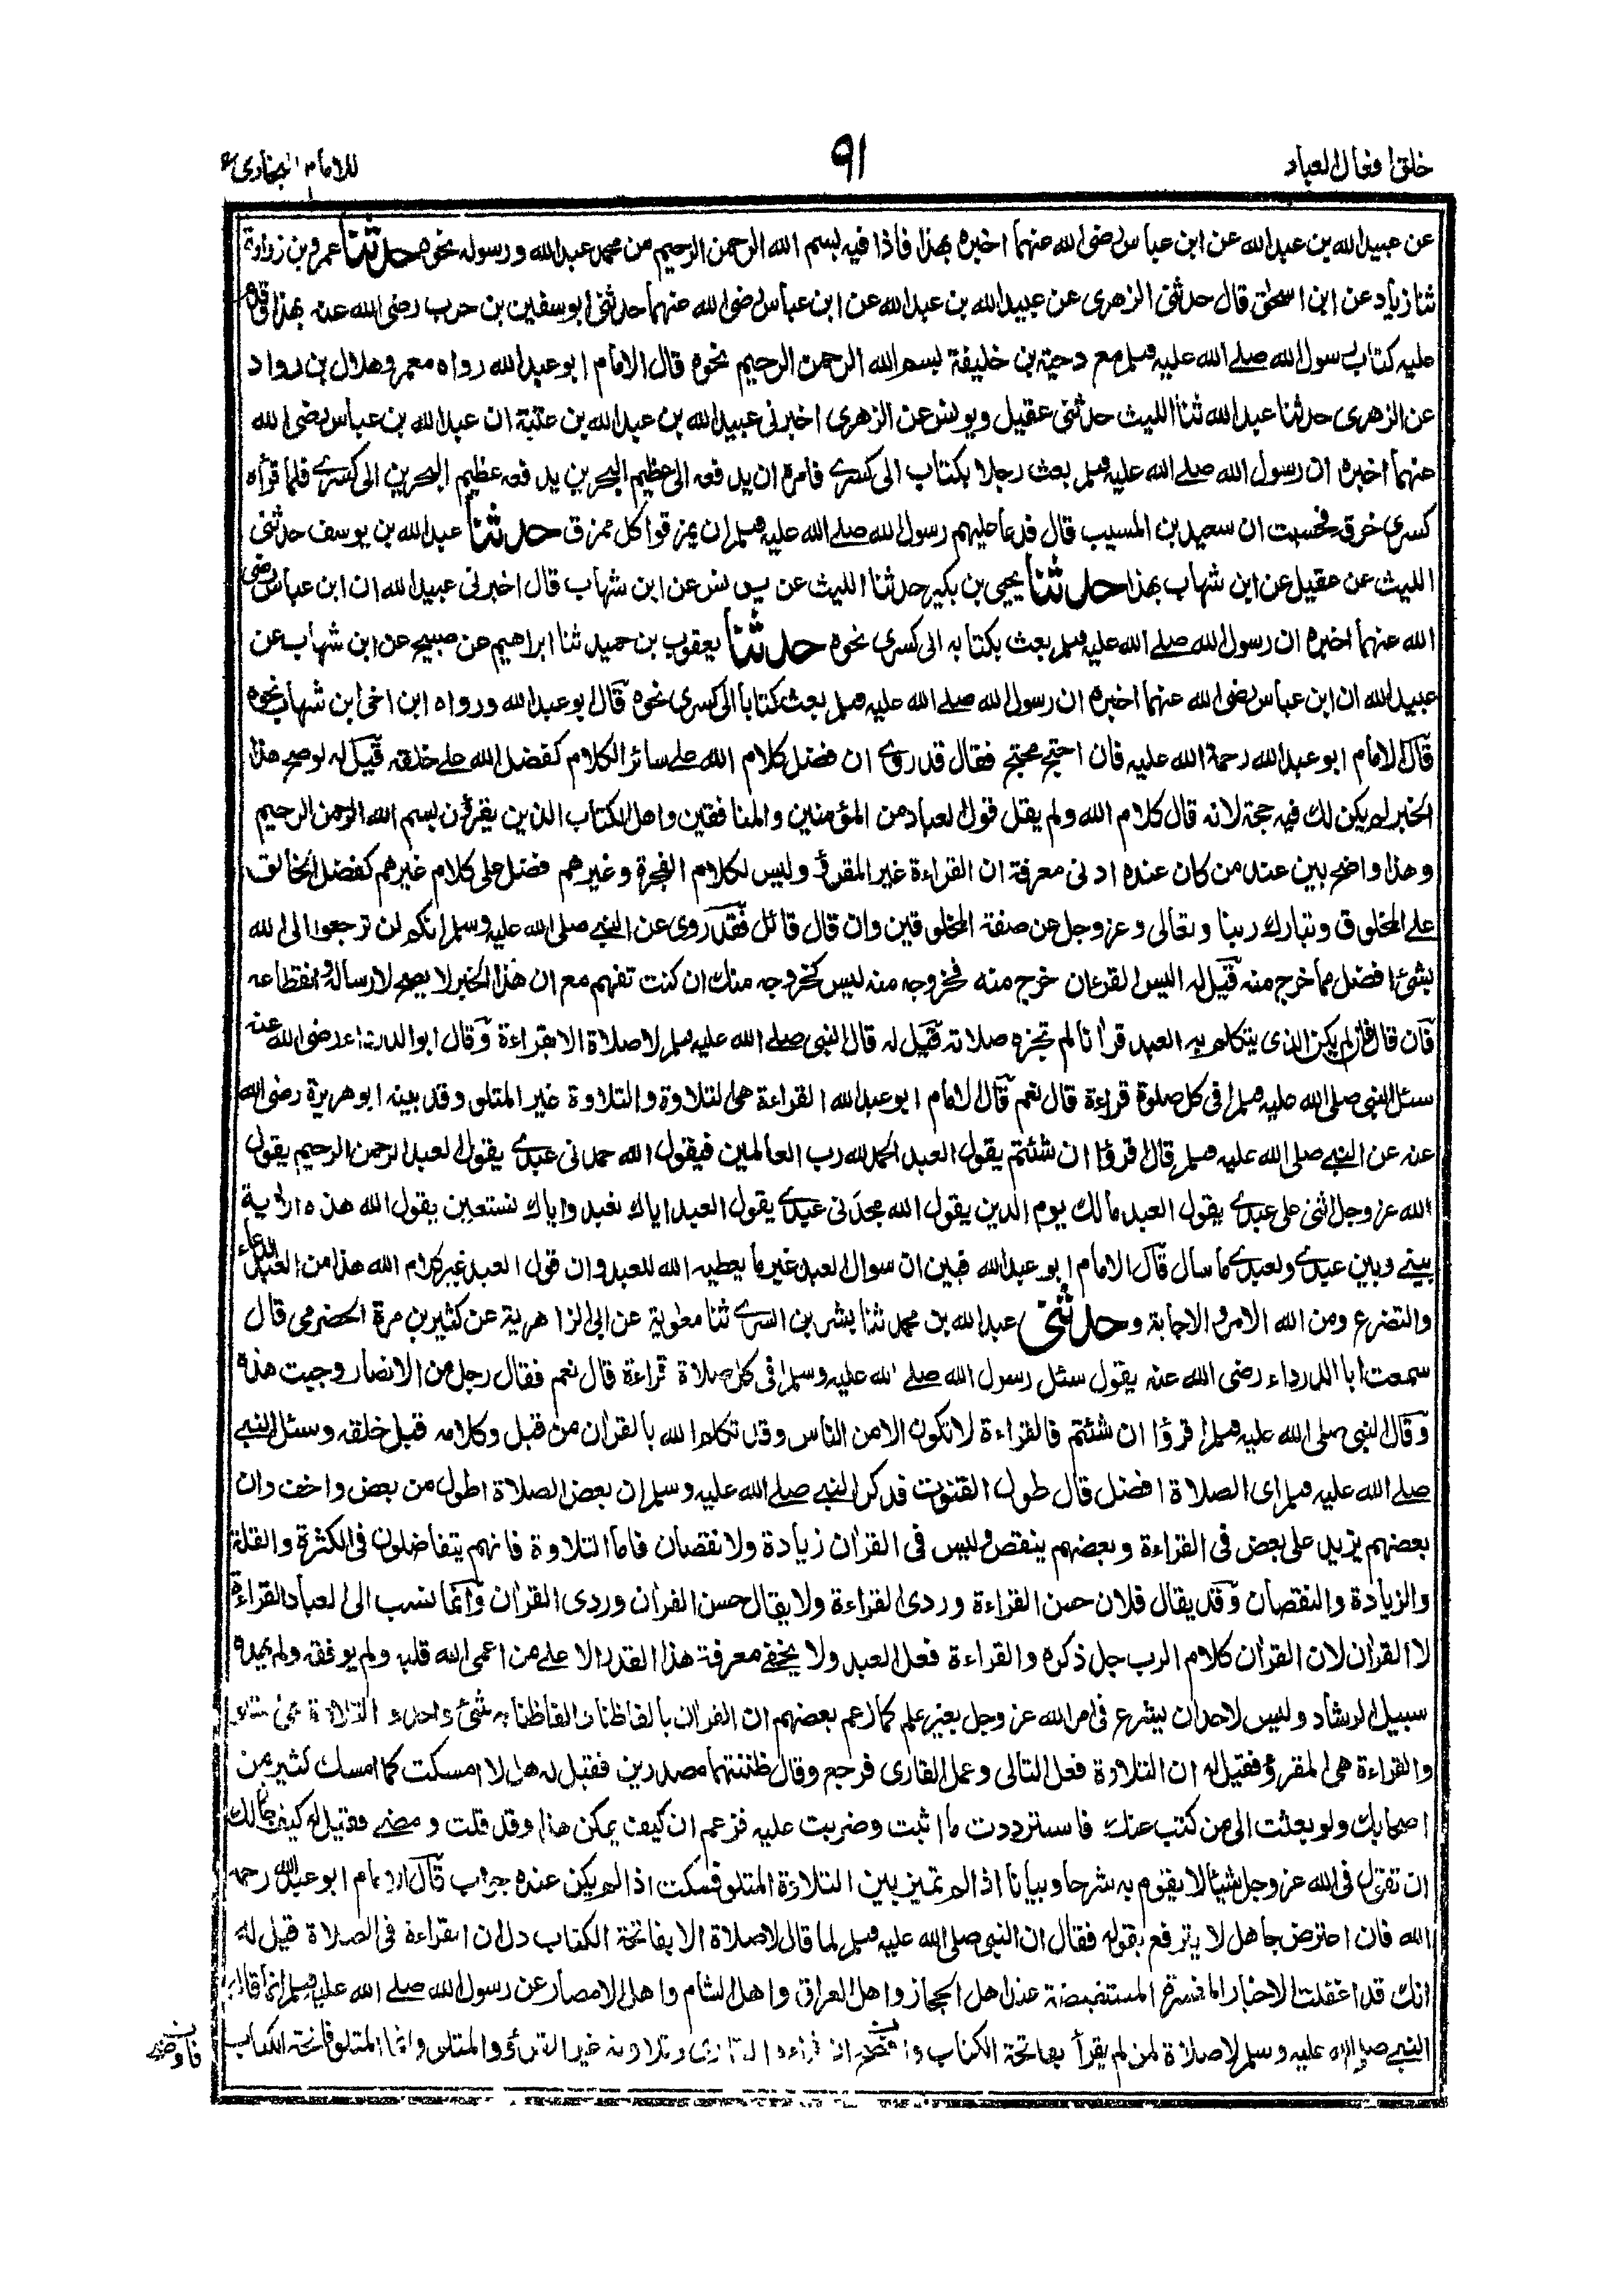 خلق افعال العباد
٩١
للامام البخاري
عن عبيد الله بن عبد الله عن ابن عباس رضي الله عنهما اخبره بهذا فاذا فيه بسم الله الرحمن الرحيم من محمد عبد الله ورسوله نحوه حدثنا عمرو بن زرارة
ثنا زياد عن ابن اسحق قال حدثني الزهري عن عبيد الله بن عبد الله عن ابن عباس رضي الله عنهما حدثني ابو سفين بن حرب رضي الله عنه بهذا قدم
عليه كتاب رسول الله صلے الله عليه وسلم مع دحية بن خليفة بسم الله الرحمن الرحيم نحوه قال الامام ابو عبد الله رواه معمر وهلال بن رواد
عن الزهري حدثنا عبد الله ثنا الليث حدثني عقيل ويونس عن الزهري اخبرني عبيد الله بن عبد الله بن عتبة ان عبد الله بن عباس رضي الله
عنهما اخبره ان رسول الله صلے الله عليه وسلم بعث رجلا بكتاب الى كسرے فامره ان يدفعه الى عظيم البحرين يدفعه عظيم البحرين الى كسرے فلما قرأه
كسرى خرق فحسبت ان سعيد بن المسيب قال فدعا عليهم رسول الله صلے الله عليه وسلم ان يمزقوا كل ممزق حدثنا عبد الله بن يوسف حدثني
الليث عن عقيل عن ابن شهاب بهذا حدثنا يحيى بن بكير حدثنا الليث عن يونس عن ابن شهاب قال اخبرني عبيد الله ان ابن عباس رضي
الله عنهما اخبره ان رسول الله صلے الله عليه وسلم بعث بكتابه الى كسرى نحوه حدثنا يعقوب بن حميد ثنا ابراهيم عن صبيح عن ابن شهاب عن
عبيد الله ان ابن عباس رضي الله عنهما اخبره ان رسول الله صلے الله عليه وسلم بعث كتابا الى كسرى نحوه قال ابو عبد الله ورواه ابن اخي ابن شهاب نحوه
قال الامام ابو عبد الله رحمة الله عليه فان احتج محتج فقال قد روي ان فضل كلام الله على سائر الكلام كفضل الله على خلقه قيل له لو صح هذا
الخبر لم يكن لك فيه حجة لانه قال كلام الله ولم يقل قول العباد من المؤمنين والمنافقين واهل الكتاب الذين يقرؤن بسم الله الرحمن الرحيم
وهذا واضح بين عند من كان عنده ادنى معرفة ان القراءة غير المقرؤ وليس لكلام الفجرة وغيرهم فضل على كلام غيرهم كفضل الخالق
على المخلوق وتبارك ربنا وتعالى وعز وجل عن صفة المخلوقين وان قال قائل فقد روى عن النبي صلى الله عليه وسلم انكم لن ترجعوا الى الله
بشئ افضل مما خرج منه قيل له اليس القرءان خرج منه فخروجه منه ليس كخروجه منك ان كنت تفهم مع ان هذا الخبر لا يصح لارساله وانقطاعه
فان قال فان لم يكن الذي يتكلم به العبد قرأنا لم تجزه صلاته قيل له قال النبي صلے الله عليه وسلم لا صلاة الا بقراءة وقال ابو الدرداء رضي الله عنه
سئل النبي صلى الله عليه وسلم افي كل صلوة قراءة قال نعم قال الامام ابو عبد الله القراءة هي التلاوة والتلاوة غير المتلو وقد بينه ابو هريرة رضي الله
عنه عن النبي صلى الله عليه وسلم قال اقرؤا ان شئتم يقول العبد الحمد لله رب العالمين فيقول الله حمدني عبدے يقول العبد الرحمن الرحيم يقول
الله عز وجل اثنى على عبدے يقول العبد مالك يوم الدين يقول الله مجدني عبدے يقول العبد اياك نعبد واياك نستعين يقول الله هذه الاية
بيني وبين عبدے ولعبدے ما سأل قال الامام ابو عبد الله فبين ان سوال العبد غير ما يعطيه الله للعبد وان قول العبد غير كلام الله هذا من العبد الدعاء
والتضرع ومن الله الامر والاجابة وحدثني عبد الله بن محمد ثنا بشر بن السرے ثنا معوية عن ابي الزاهرية عن كثير بن مرة الحضرمي قال
سمعت ابا الدرداء رضي الله عنه يقول سئل رسول الله صلے الله عليه وسلم افي كل صلاة قراءة قال نعم فقال رجل من الانصار وجبت هذه
وقال النبي صلى الله عليه وسلم اقرؤا ان شئتم فالقراءة لا تكون الا من الناس وقد تكلم الله بالقران من قبل وكلامه قبل خلقه وسئل النبي
صلے الله عليه وسلم اى الصلاة افضل قال طول القنوت فذكر النبي صلے الله عليه وسلم ان بعض الصلاة اطول من بعض واخف وان
بعضهم يزيد على بعض في القراءة وبعضهم ينقص وليس في القران زيادة ولا نقصان فاما التلاوة فانهم يتفاضلون في الكثرة والقلة
والزيادة والنقصان وقد يقال فلان حسن القراءة وردى القراءة ولا يقال حسن القران وردى القران وانما نسب الى العباد القراءة
لا القران لان القران كلام الرب جل ذكره والقراءة فعل العبد ولا يخفى معرفة هذا القدر الا على من اعمى الله قلبه ولم يوفقه ولم يهده
سبيل الرشاد وليس لاحد ان يشرع في امر الله عز وجل بغير علم كما زعم بعضهم ان القران بالفاظنا والفاظنا به شئ واحد و التلاوة هي المتلو
والقراءة هي المقرؤ فقيل له ان التلاوة فعل التالى وعمل القارى فرجع وقال ظننتهما مصدرين فقيل له هل لا امسكت كما امسك كثير من
اصحابك ولو بعثت الى من كتب عنك فاسترددت ما اثبت وضربت عليه فزعم ان كيف يمكن هذا وقد قلت ومضى فقيل له كيف جاز لك
ان تقول في الله عز وجل شيئا لا يقوم به شرحا وبيانا اذا لم تميز بين التلاوة المتلو فسكت اذ لم يكن عنده جواب قال الامام ابو عبد الله رحمه
الله فان اعترض جاهل لا يترفع بقوله فقال ان النبي صلى الله عليه وسلم لما قال لا صلاة الا بفاتحة الكتاب دل ان القراءة في الصلاة قيل له
انك قد اغفلت الاخبار المفسرة المستفيضة عند اهل الحجاز واهل العراق واهل الشام واهل الامصار عن رسول الله صلے الله عليه وسلم انما قال
النبي صلى الله عليه وسلم لا صلاة لمن لم يقرأ بفاتحة الكتاب ان قراءة القارى وتلاوته غير المقرؤ والمتلو وانما المتلو فاتحة الكتاب